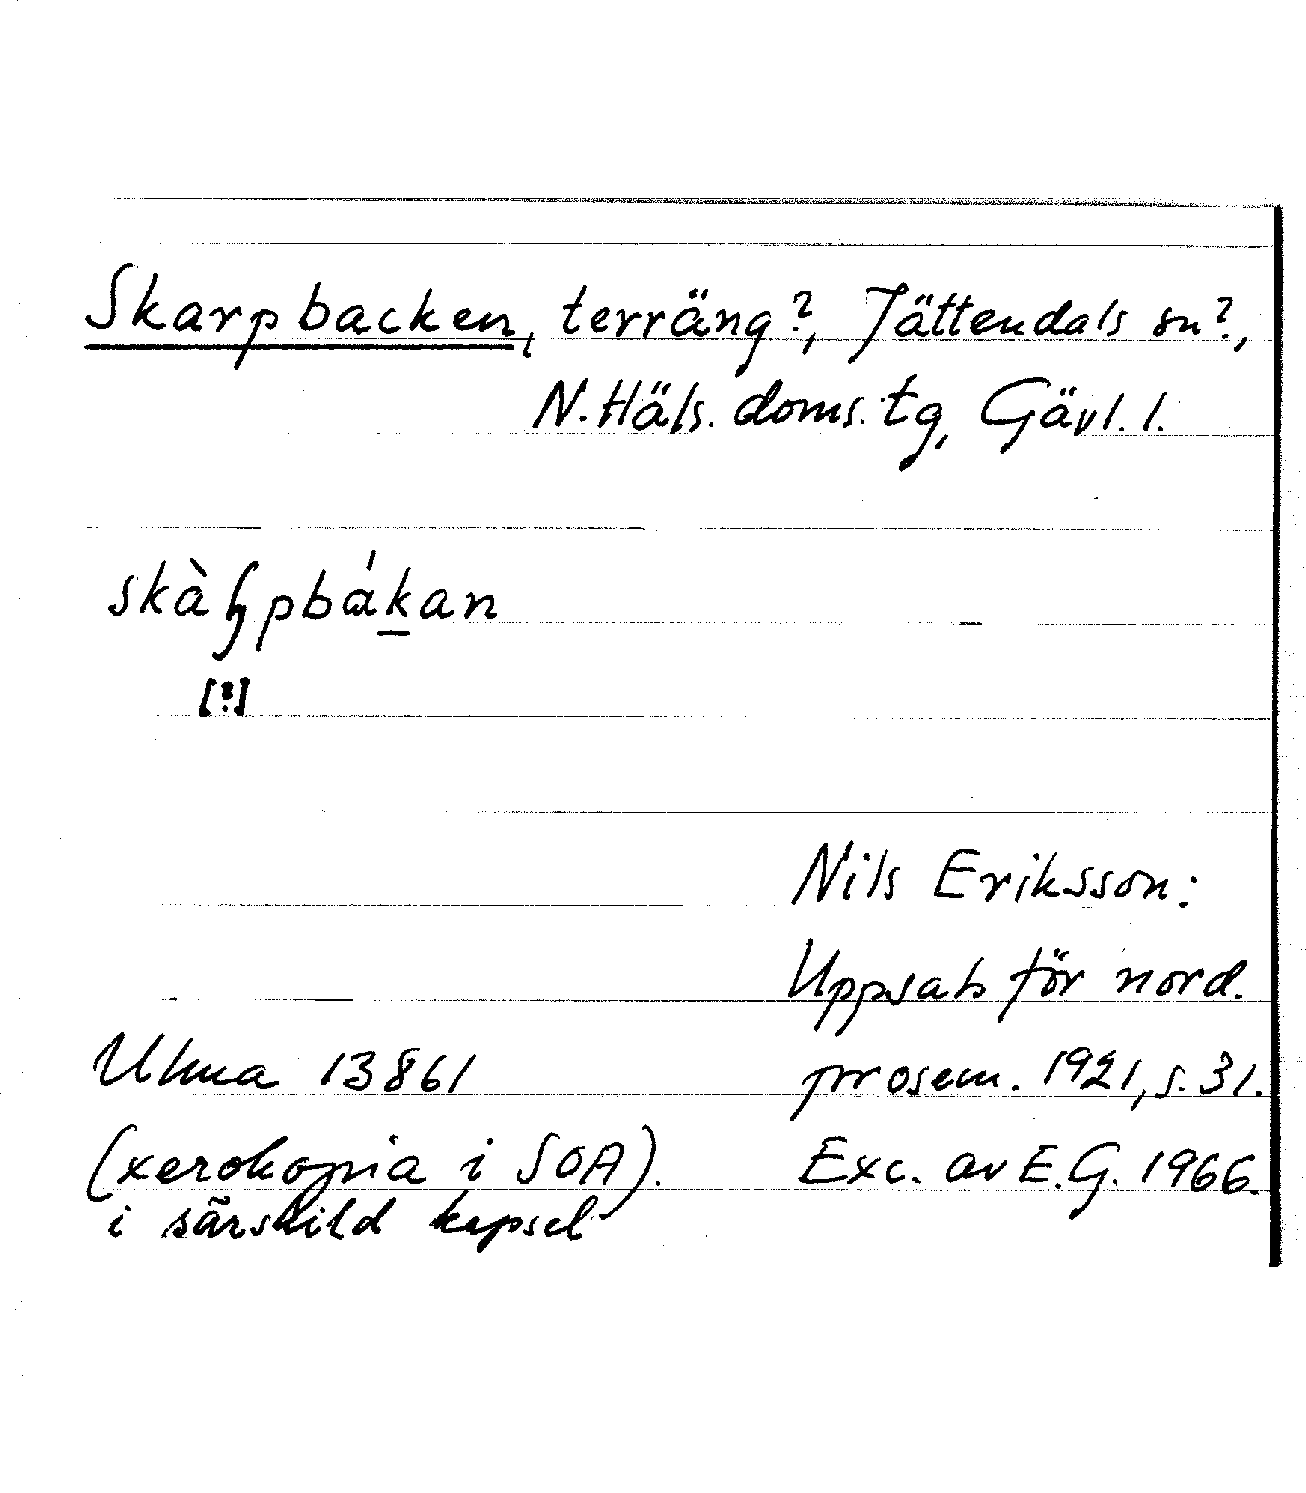 Skarpbacken, terräng?, Jättendals sn?,
N. Häls. doms. tg, Gävl. l.
skàꞕpbákan
[!]
Nils Eriksson:
Uppsats för nord.
Ulma 13861 prosem. 1921, s. 31.
(xerokopia i SOA). Exc. av E.G. 1966.
i särskild kapsel